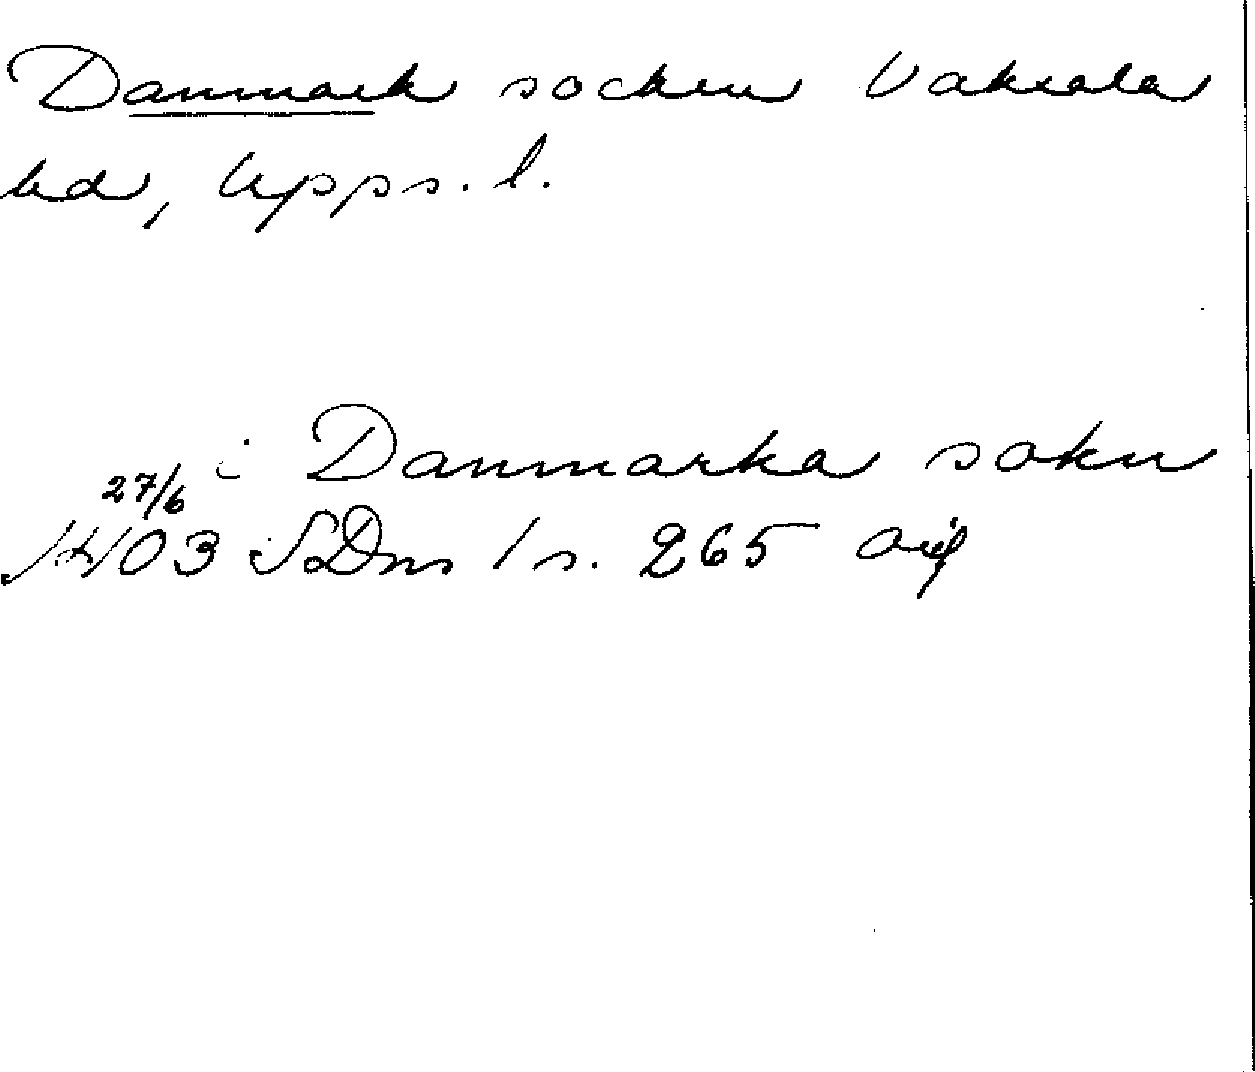 Danmark socken Vaksala
hd, Upps. l.
i Danmarka sokn
27/6
1403 SDns 1 s. 265 or